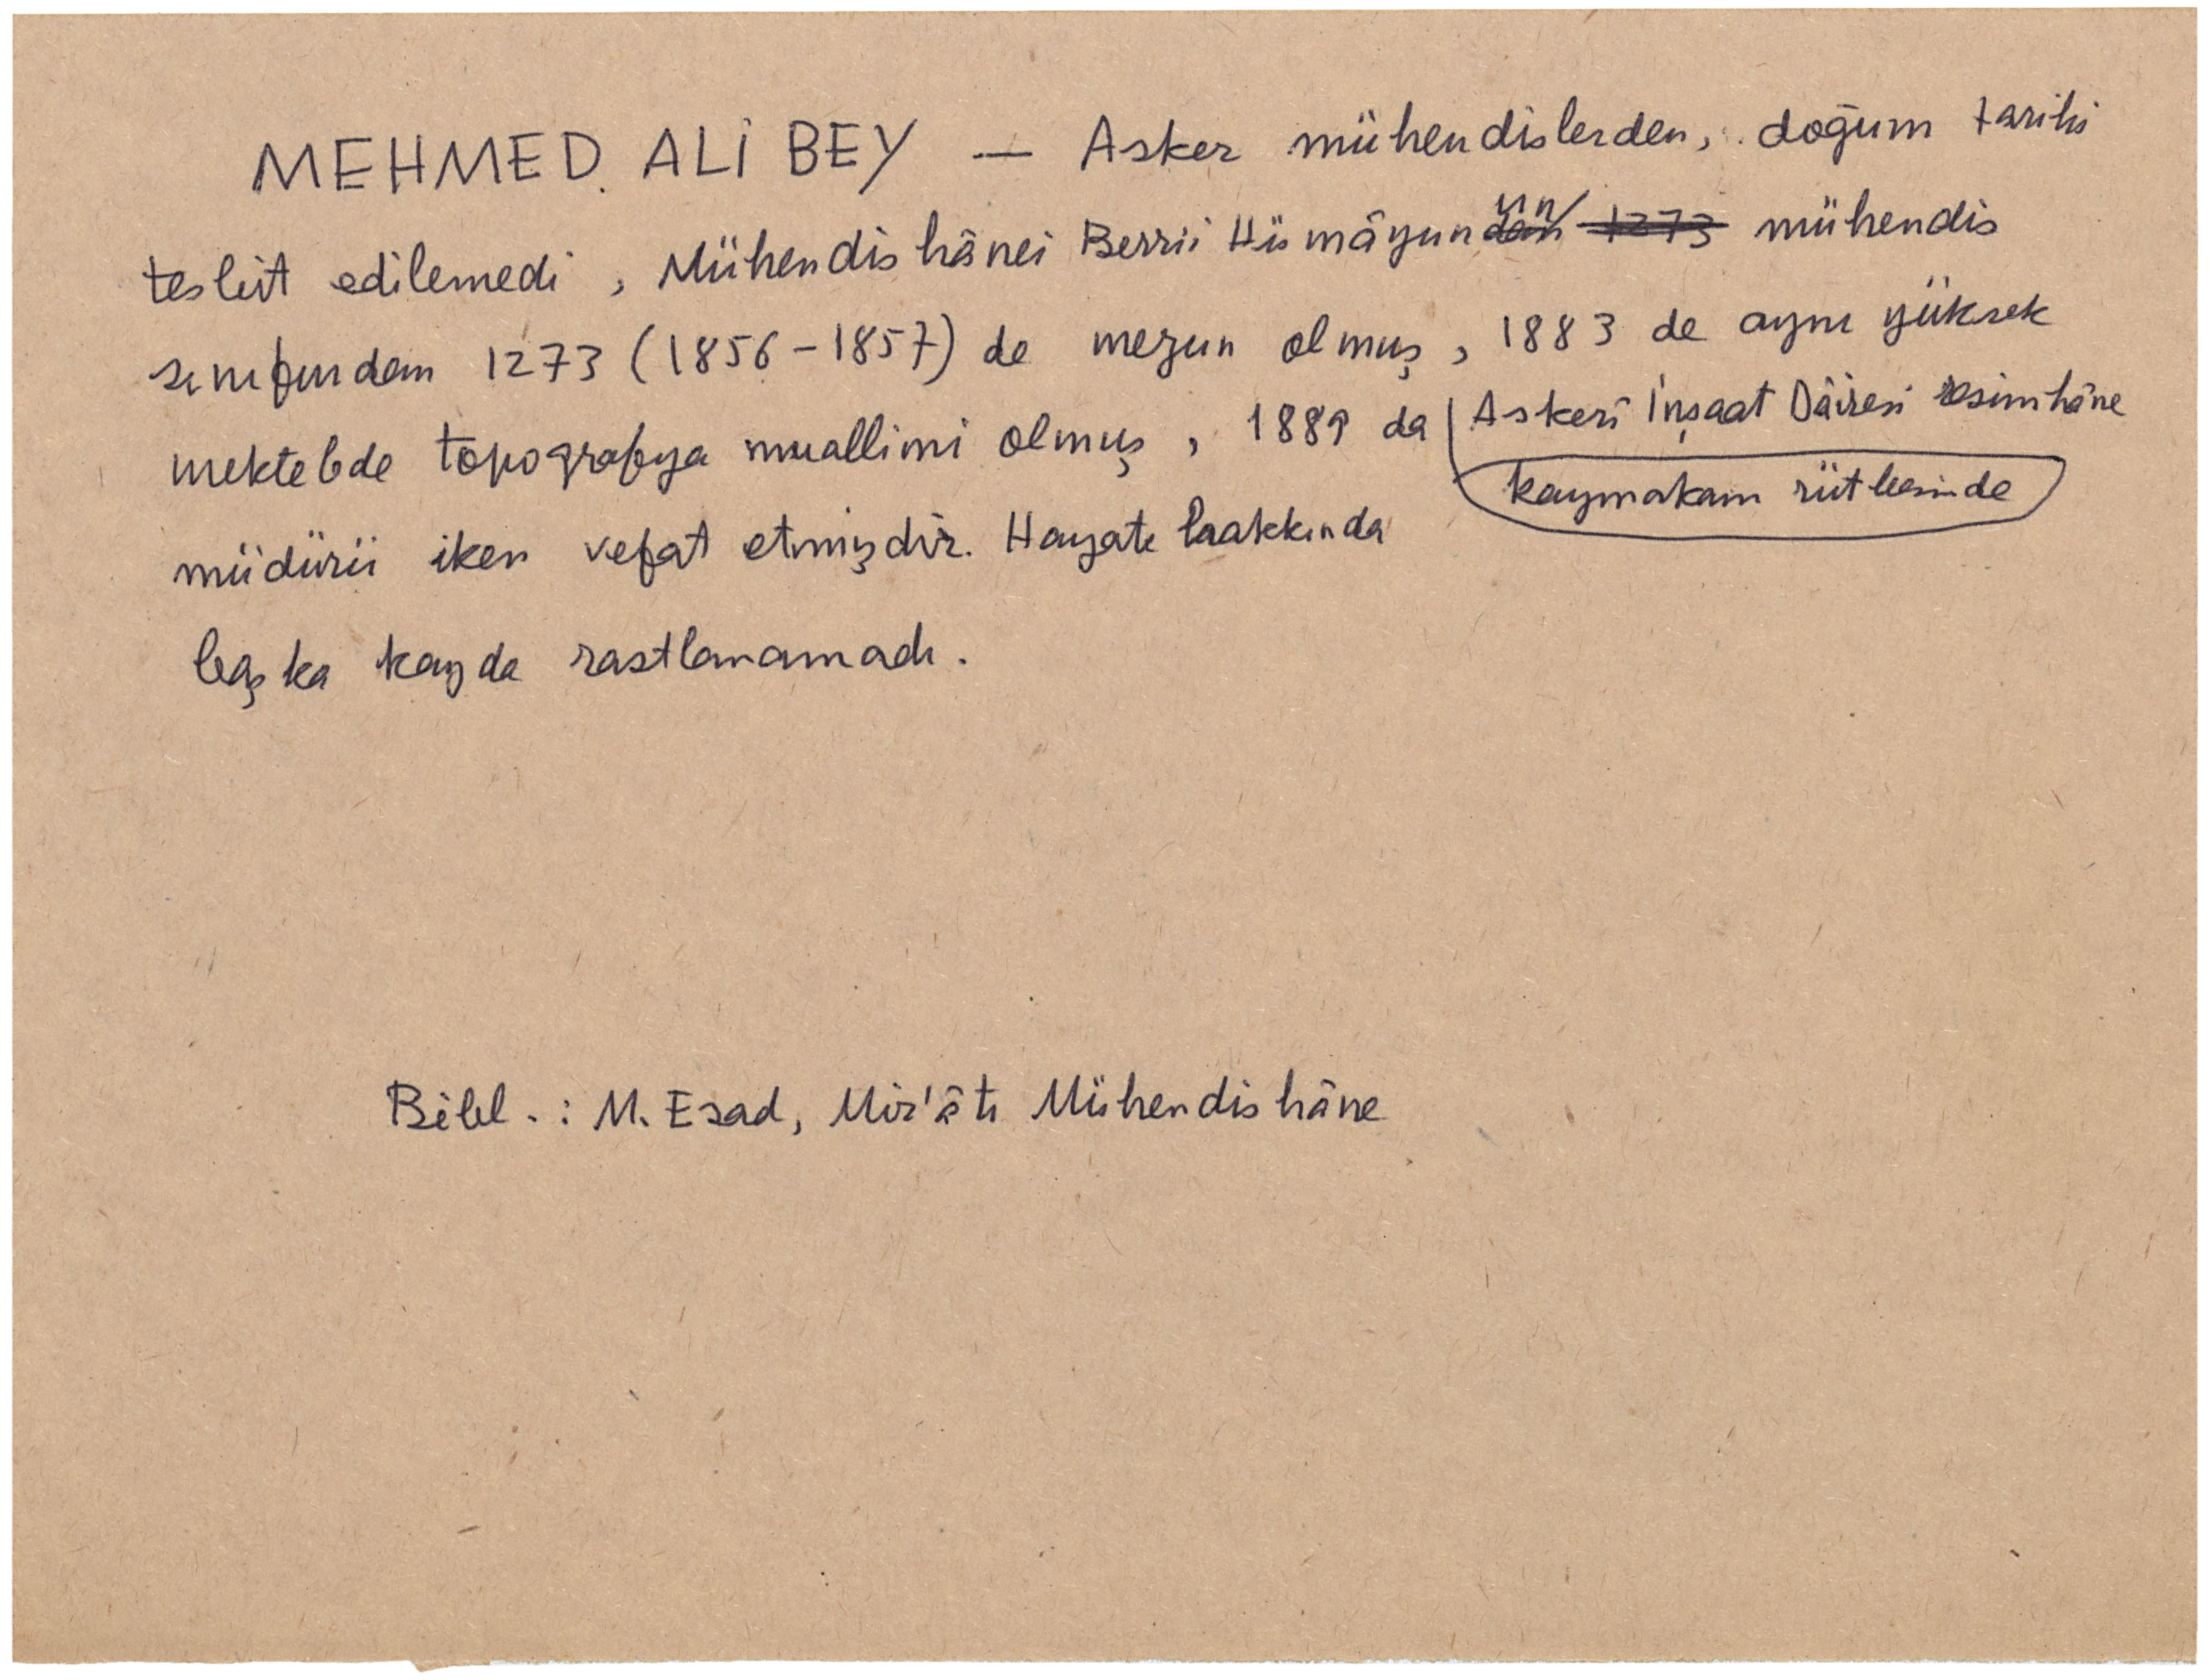 MEHMED ALİ BEY — Asker mühendislerden, doğum tarihi
tesbit edilemedi, Mühendishânei Berrii Hümâyunun mühendis
sınıfından 1273 (1856-1857) de mezun olmuş, 1883 de aynı yüksek
mektebde topografya muallimi olmuş, 1889 da Askerî İnşaat Dâiresi resimhâne
kaymakam rütbesinde
müdürü iken vefat etmişdir. Hayatı hakkında
başka kayda rastlanamadı.
Bibl.: M. Esad, Mir'âtı Mühendishâne